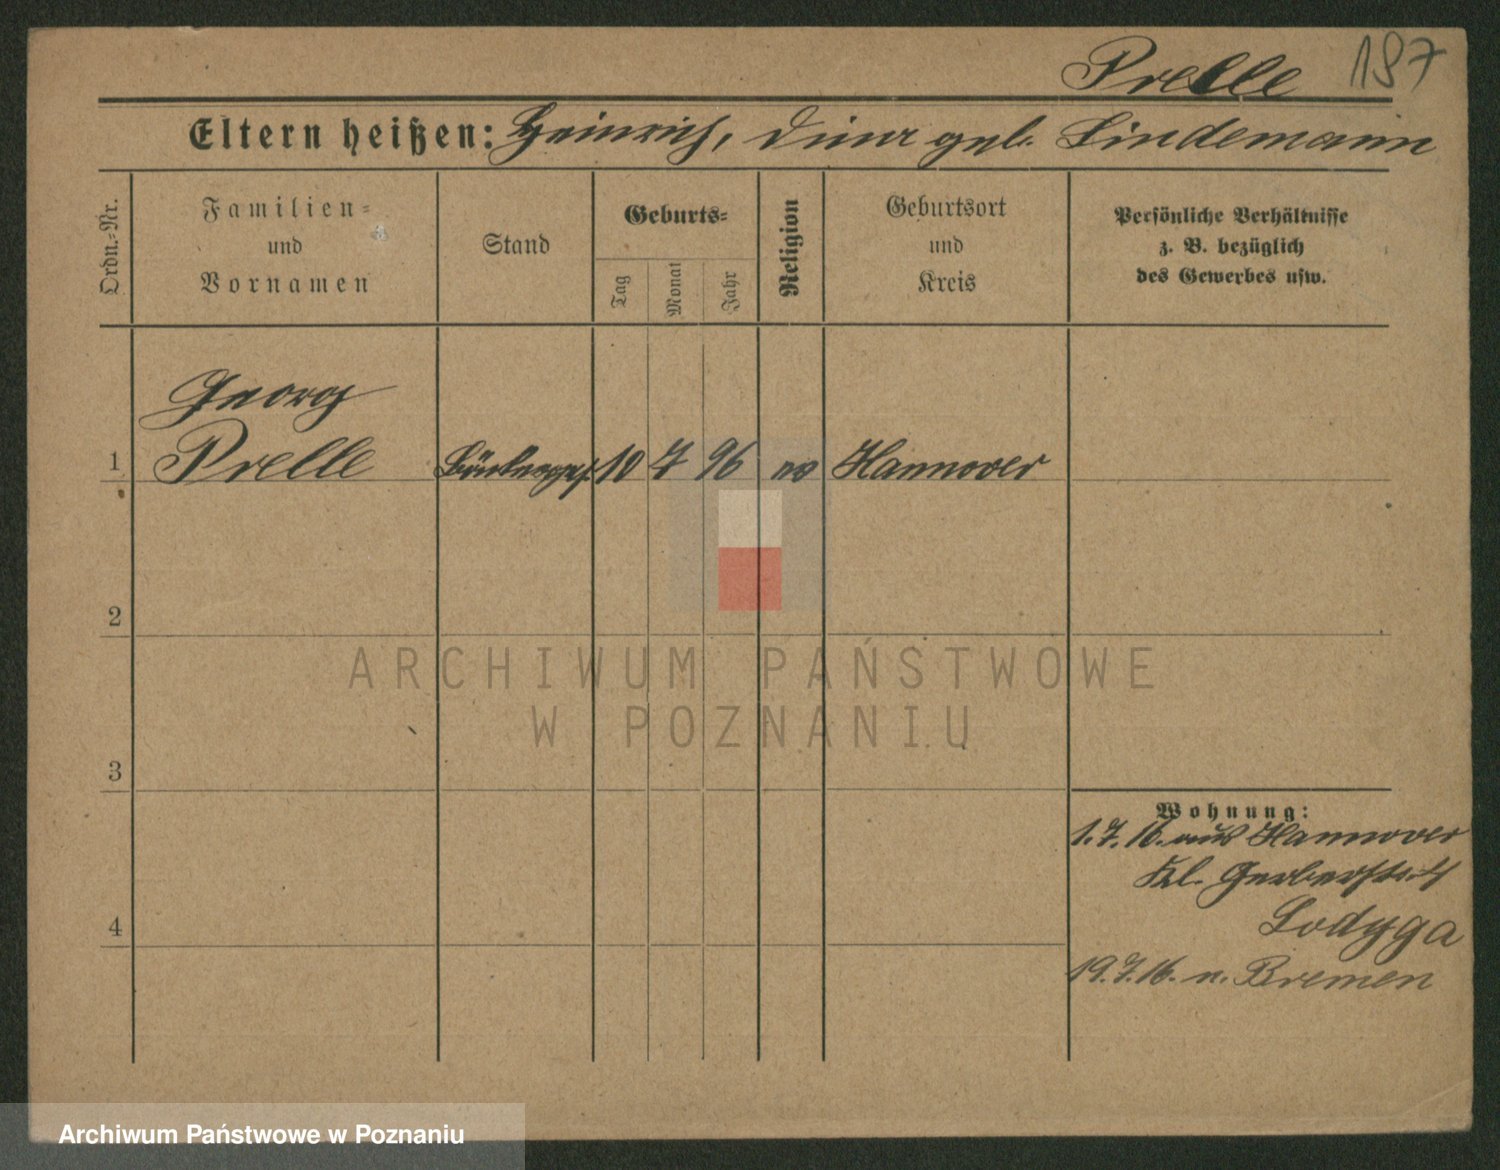 Prelle 197
Eltern heißen: Heinrich, Dina geb. Lindemann
Ordn.-Nr.
Familien-
und
Vornamen
Stand
Geburts-
Tag
Monat
Jahr
Religion
Geburtsort
und
Kreis
Persönliche Verhältnisse
z. B. bezüglich
des Gewerbes usw.
Georg
1 Prelle 10 7 96 ev Hannover
2
3
4
Wohnung:
1.7.16. aus Hannover
Kl. Gerberstr. 4
Lodyga
19.7.16. n. Bremen
ARCHIWUM PAŃSTWOWE
W POZNANIU
Archiwum Państwowe w Poznaniu